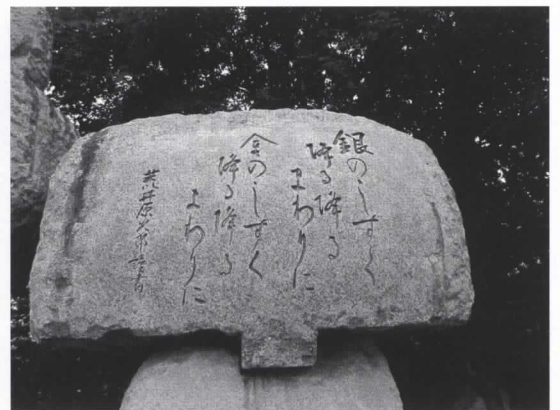 銀のしずく
降る降る
まわりに
金のしずく
降る降る
まわりに